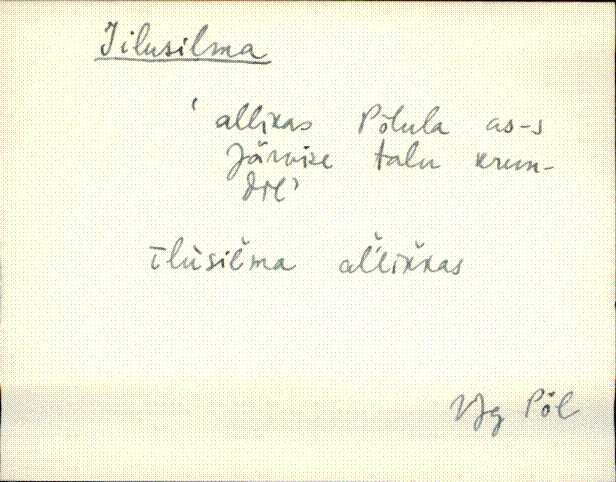 Iilusilma
'allikas Põlula as-s
Järvise talu krun-
dil'
īlùsiľma aľľikkas
VJg Põl